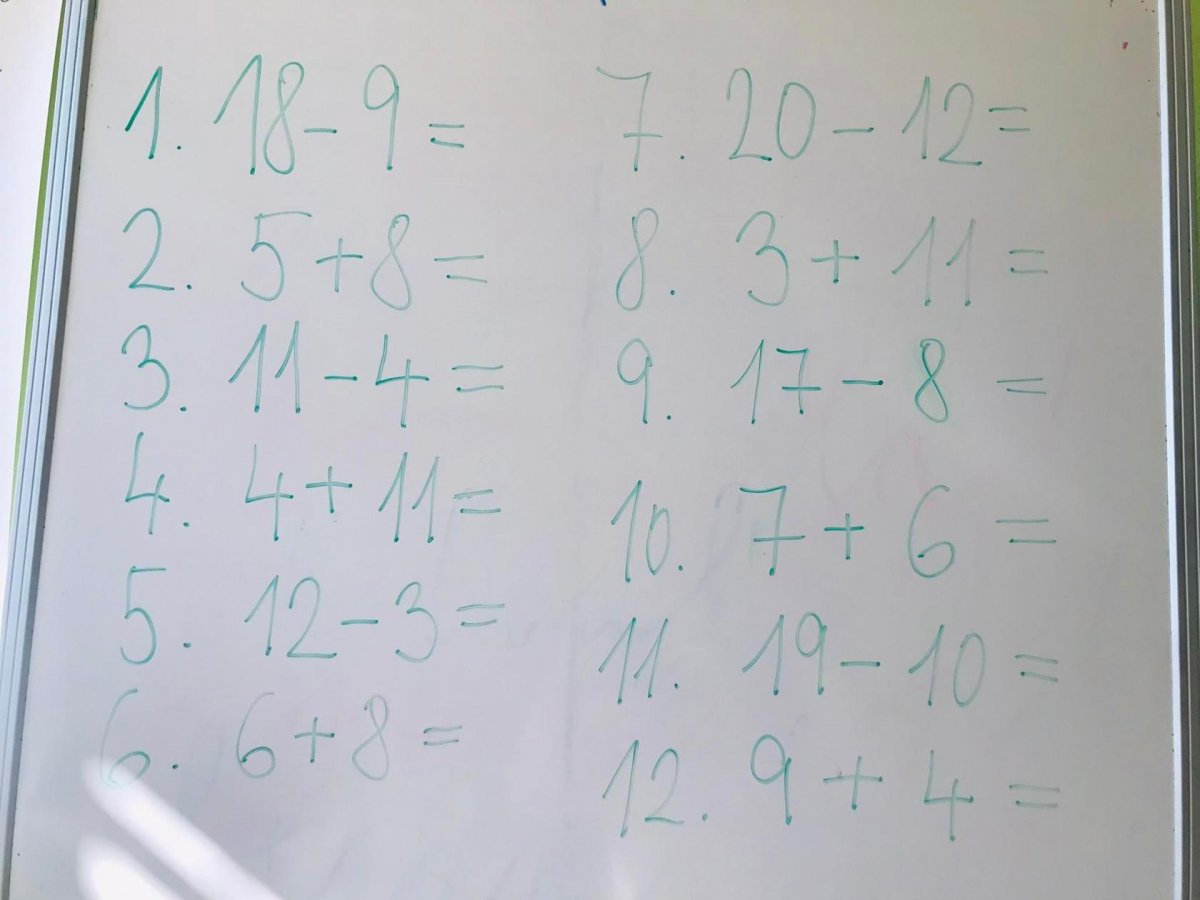 1. 18 - 9 =
2. 5 + 8 =
3. 11 - 4 =
4. 4 + 11 =
5. 12 - 3 =
6. 6 + 8 =
7. 20 - 12 =
8. 3 + 11 =
9. 17 - 8 =
10. 7 + 6 =
11. 19 - 10 =
12. 9 + 4 =